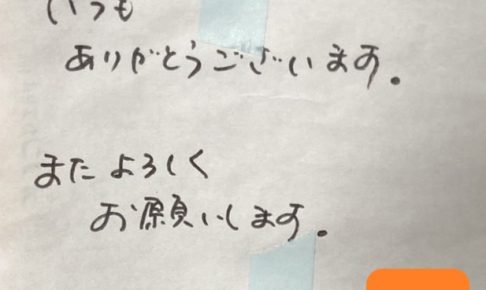 いつも
ありがとうございます。
また よろしく
お願いします。